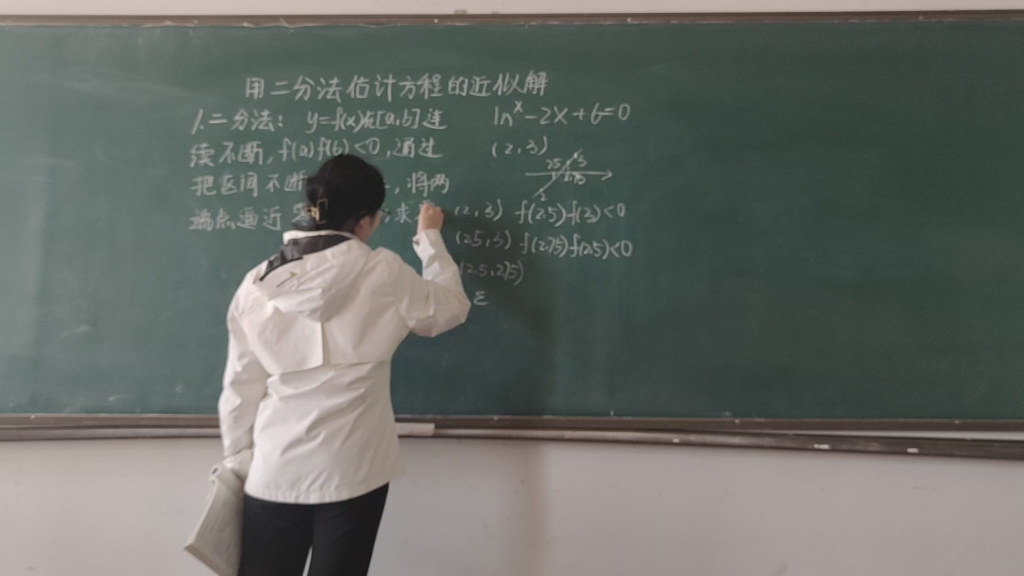 用二分法估计方程的近似解
1.二分法: y=f(x)在[a,b]连
续不断,f(a)f(b)<0,通过
把区间不断
,将两
端点逼近
求
ln^x-2x+6=0
(2,3)
2.5
3
2.75
2
(2,3) f(2.5)f(3)<0
(2.5,3) f(2.75)f(2.5)<0
(2.5,2.75)
ε